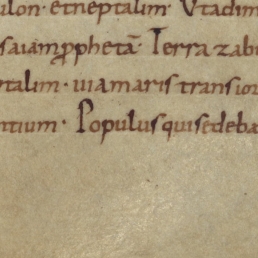 ulon · et neptalim Ut adim
saiam ꝓphetā Terra zabu
ptalim · uia maris transior
ntium · Populus qui sedeba